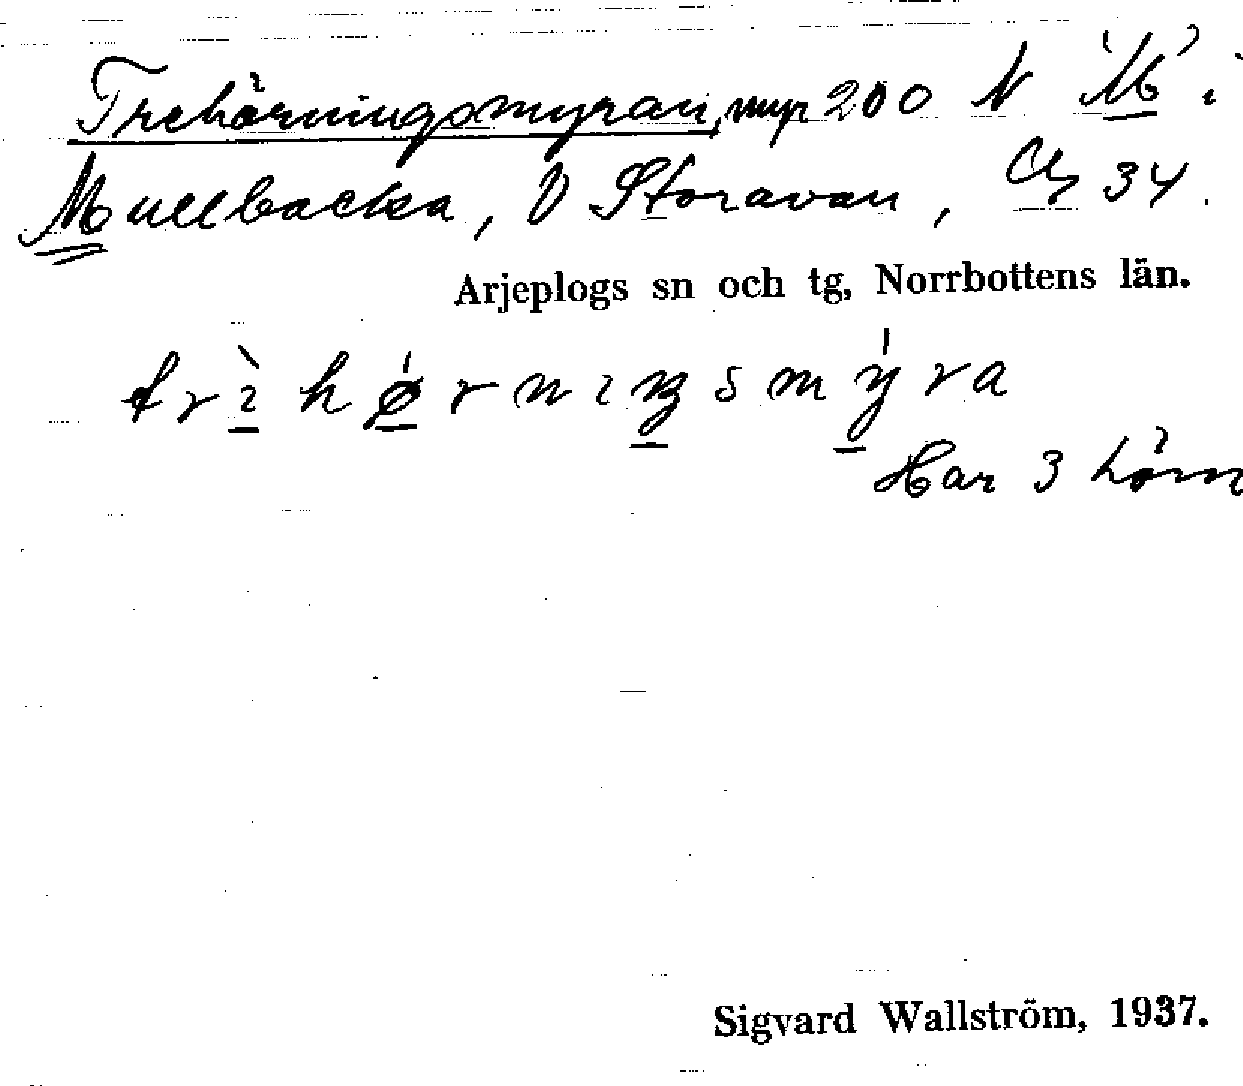 Trehörningsmyran, myr 200 N 'M' i
Mullbacka, V Storavan, Cg 34.
Arjeplogs sn och tg, Norrbottens län.
trìhǿrnıŋsmýra
Har 3 hörn
Sigvard Wallström, 1937.